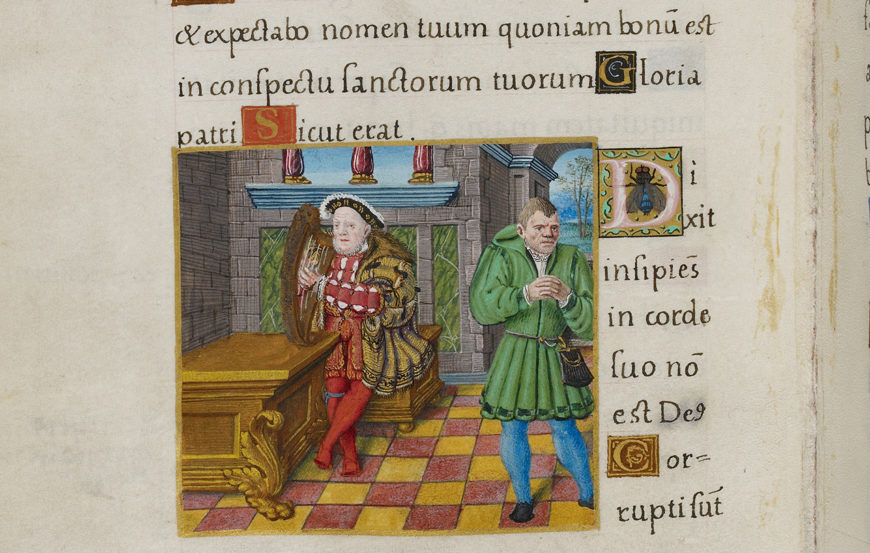 & expectabo nomen tuum quoniam bonū est
in conſpectu ſanctorum tuorum Gloria
patri Sicut erat .
Di
xit
inſipiēs
in corde
ſuo nō
est Deꝰ
Cor=
rupti ſūt